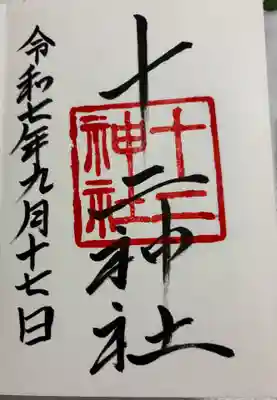 十二神社
十二
神社
令和七年九月十七日